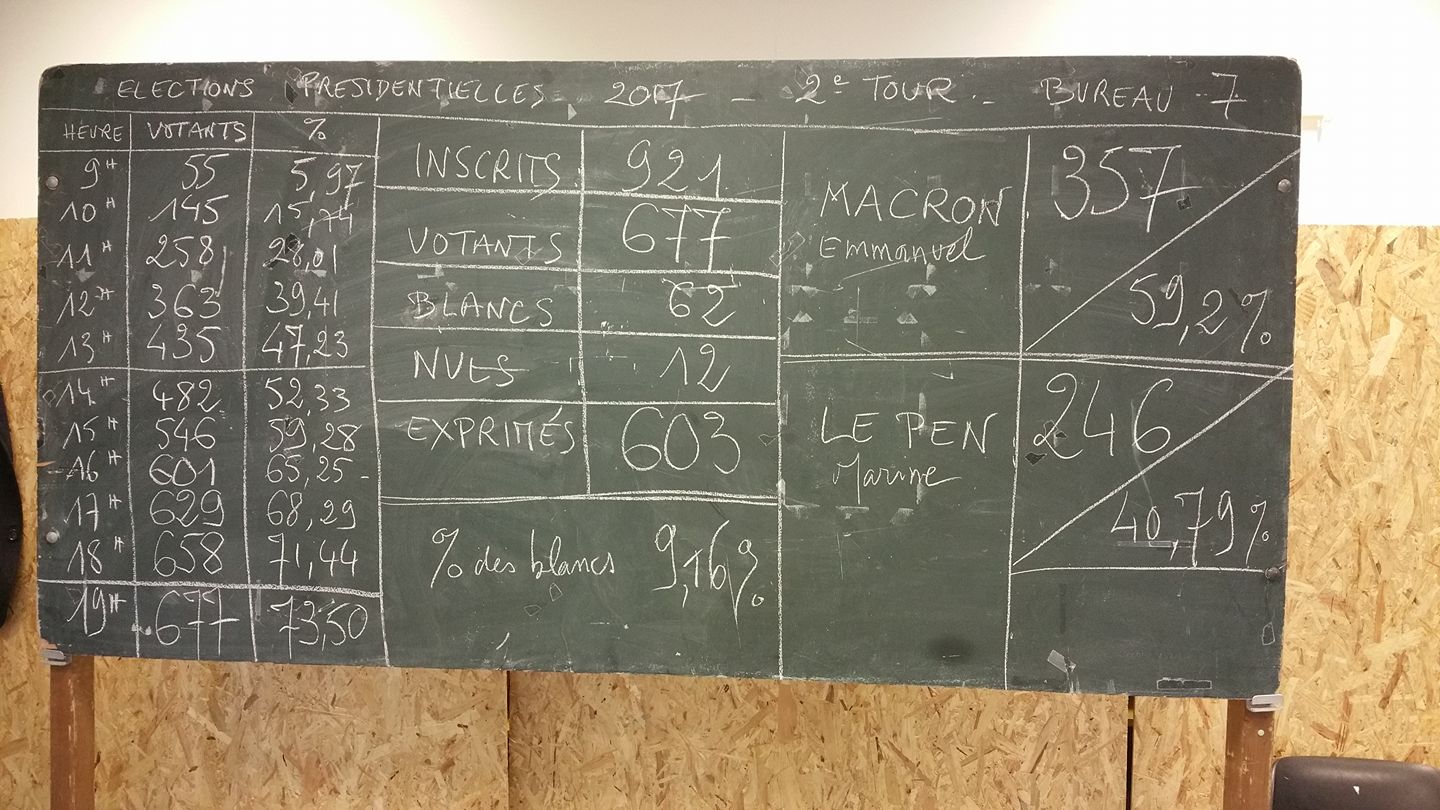 ELECTIONS PRESIDENTIELLES 2017 - 2e TOUR - BUREAU 7
HEURE VOTANTS %
9H 55 5,97
10H 145 15,74
11H 258 28,01
12H 363 39,41
13H 435 47,23
14H 482 52,33
15H 546 59,28
16H 601 65,25
17H 629 68,29
18H 658 71,44
19H 677 73,50
INSCRITS 921
VOTANTS 677
BLANCS 62
NULS 12
EXPRIMÉS 603
% des blancs 9,16%
MACRON 357
Emmanuel
59,2%
LE PEN 246
Marine
40,79%